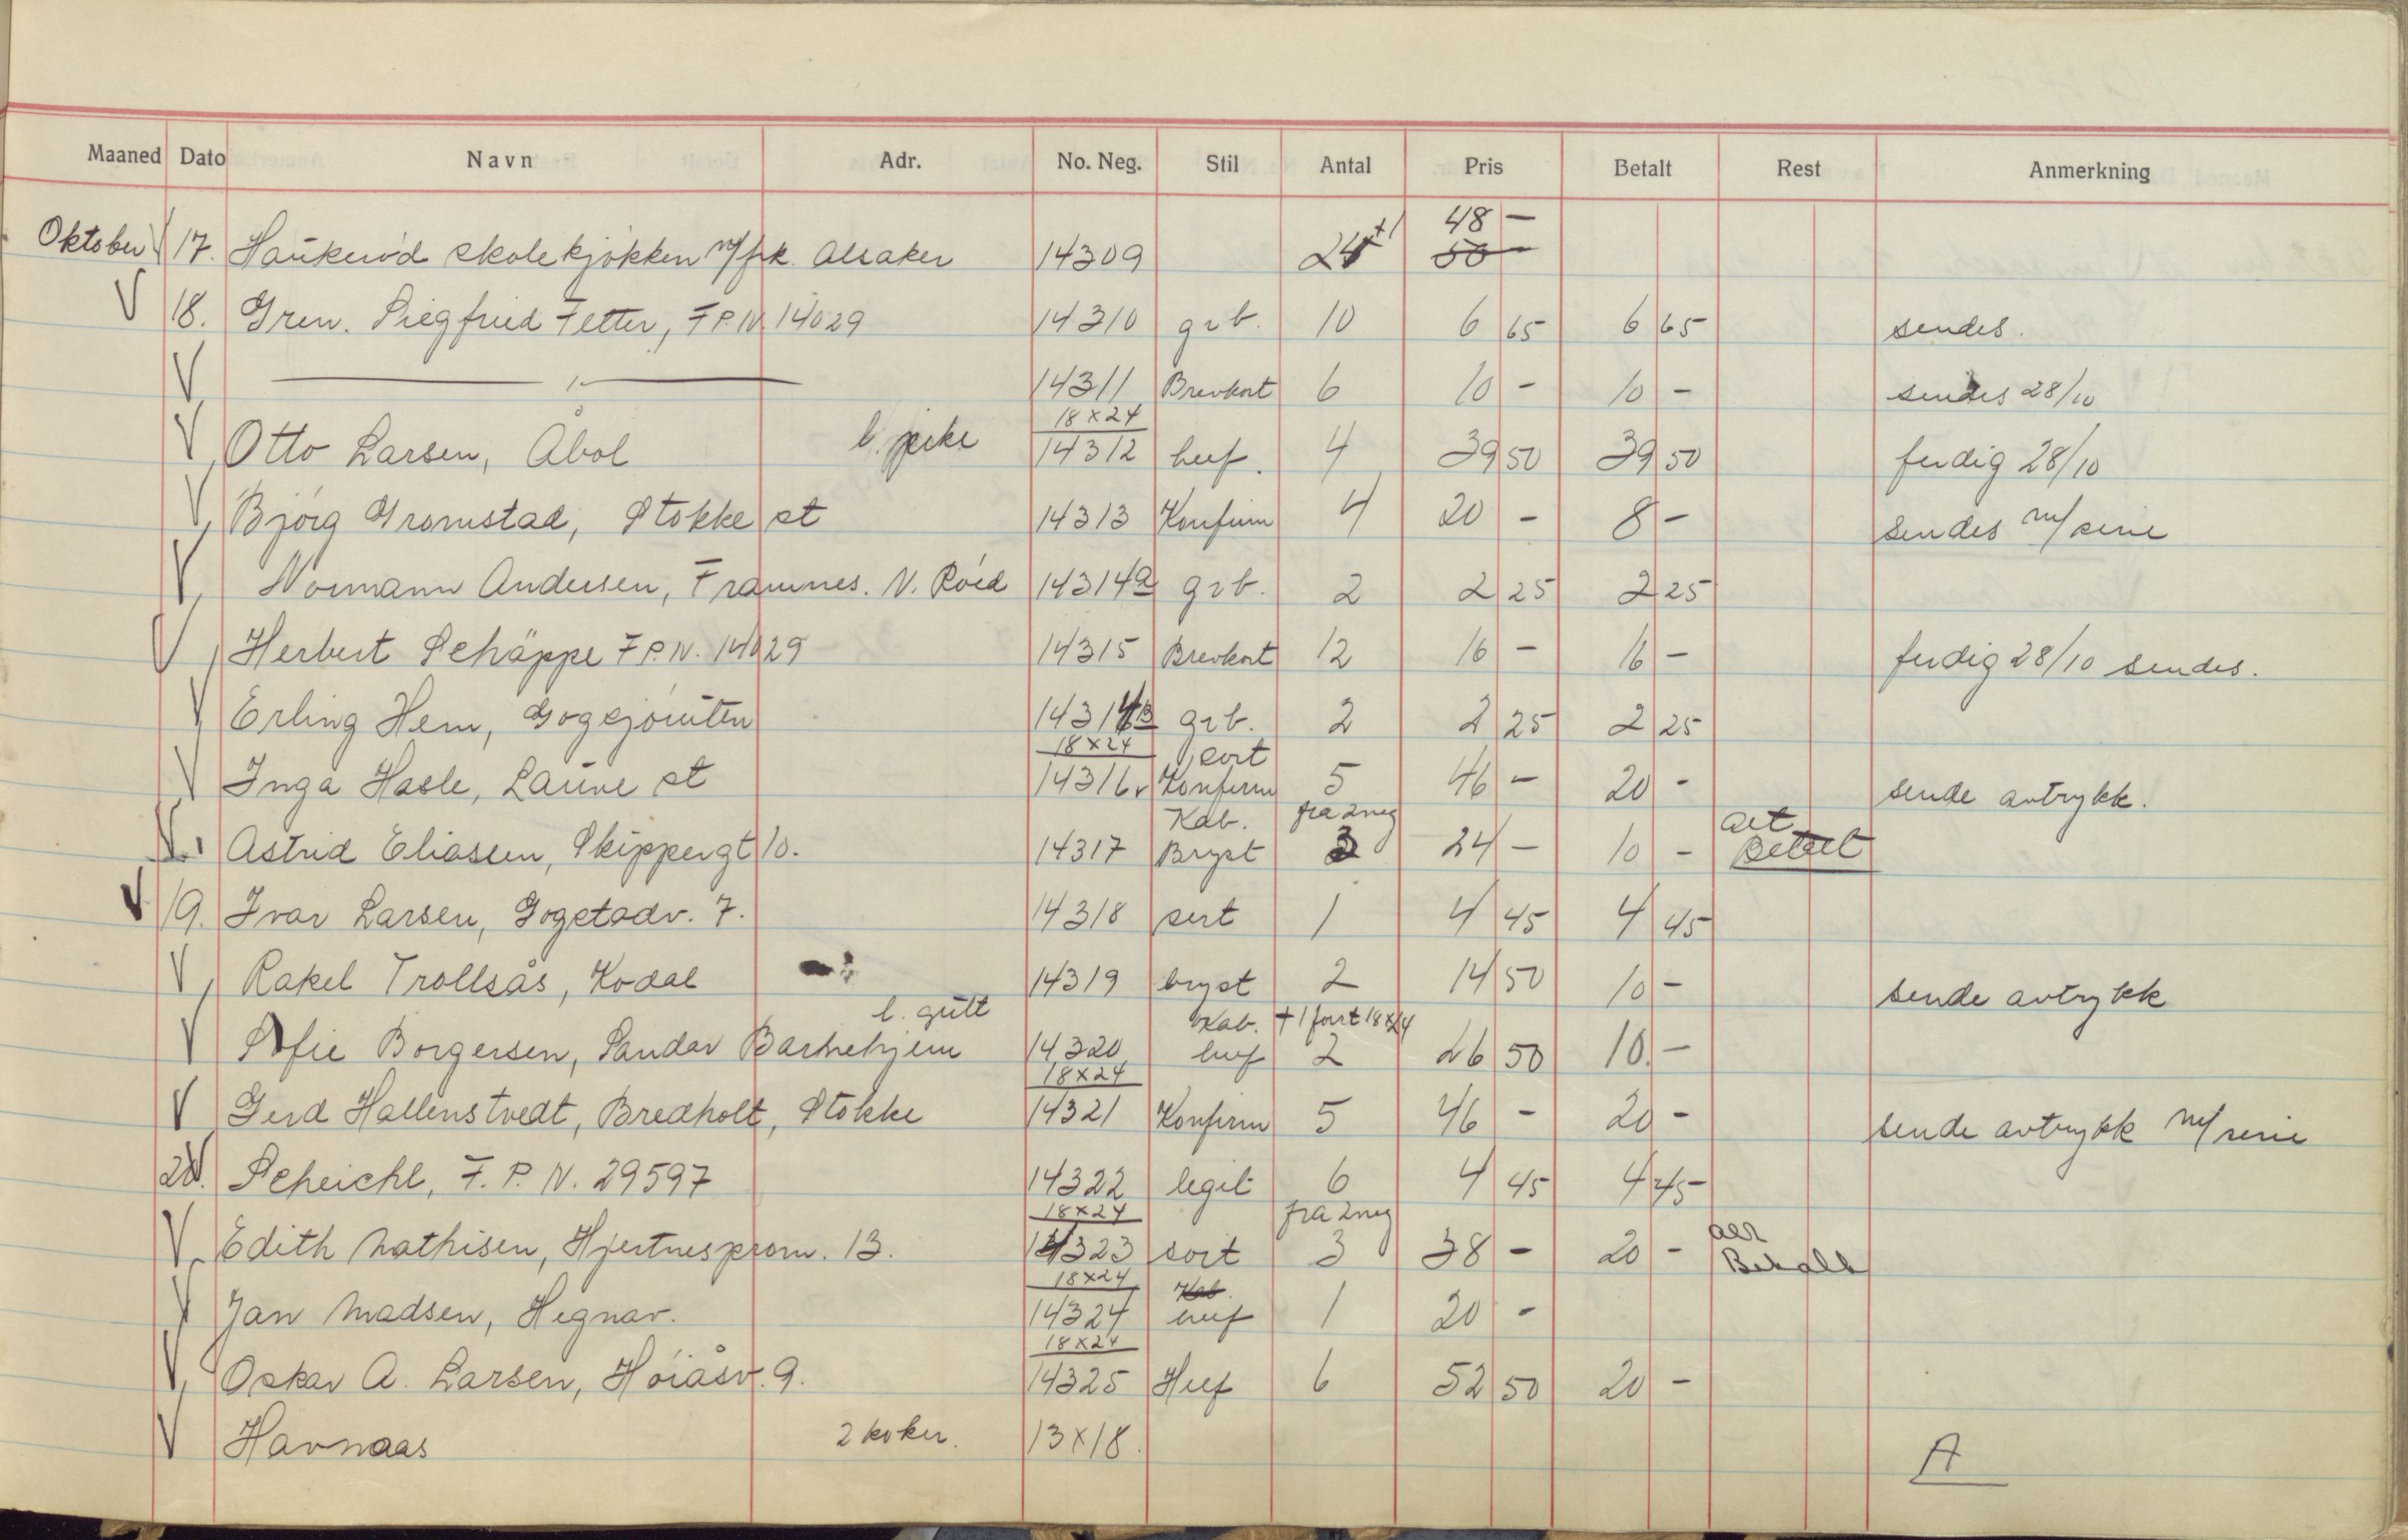 Maaned Dato Navn Adr. No. Neg. Stil Antal Pris Betalt Rest Anmerkning
48 —
Oktober 17. Haukeröd skolekjökken m/frk. Alsaker 14309 24 +1 50 —
18. Gren. Siegfried Fetter, F.P.N. 14029 14310 grb. 10 6 65 6 65 sendes.
— " — 14311 Brevkort 6 10 - 10 - sendes 28/10
18 x 24
Otto Larsen, Åbol 14312 4 39 50 39 50 ferdig 28/10
Björg Gromstad, Stokke st 14313 Konfirm 4 20 - 8 - sendes m/serie
Normann Andersen, Framnes. N. Röed 14314a grb. 2 2 25 2 25
Herbert Schäppe F.P.N. 14029 14315 Brevkort 12 16 - 16 - ferdig 28/10 sendes.
Erling Hem, Gogsjöruten 14314B grb. 2 2 25 2 25
18 x 24 sort
Inga Hasle, Lauve st 14316 Konfirm 5 46 - 20 - sende avtrykk.
Kab. fra 2 neg alt
Astrid Eliassen, Skippergt 10. 14317 Bryst 3 24 - 10 - Betalt
19. Ivar Larsen, Gogstadv. 7. 14318 sort 1 4 45 4 45
Rakel Trollsås, Kodal 14319 bryst 2 14 50 10 - sende avtrykk
l. gutt Kab. + 1 fort 18x24
Sofie Borgersen, Sandar Barnehjem 14320 2 26 50 10. -
18 x 24
Gerd Hallenstvedt, Bredholt, Stokke 14321 Konfirm 5 46 - 20 - sende avtrykk m/serie
20. Scheichl, F. P. N. 29597 14322 legit 6 4 45 4 45
18 x 24 fra 2 neg alt
Edith Mathisen, Hjertnesprom. 13. 14323 sort 3 38 - 20 - Betalt
18 x 24 Kab.
Jan Madsen, Hegnav. 14324 1 20 -
18 x 24
Oskar A. Larsen, Höiåsv. 9. 14325 6 52 50 20 -
Havnaas 2 koker. 13 x 18. A